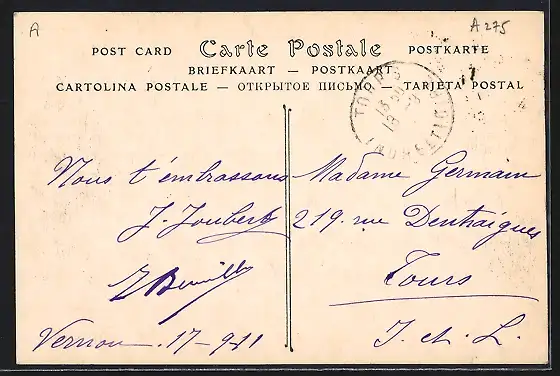 A
A 275
POST CARD Carte Postale POSTKARTE
BRIEFKAART — POSTKAART
CARTOLINA POSTALE — ОТКРЫТОЕ ПИСЬМО — TARJETA POSTAL
Nous t'embrassons
J. Joubert
Vernou 17-9-11
Madame Germain
219. rue Denhaigues
Tours
I. et. L.